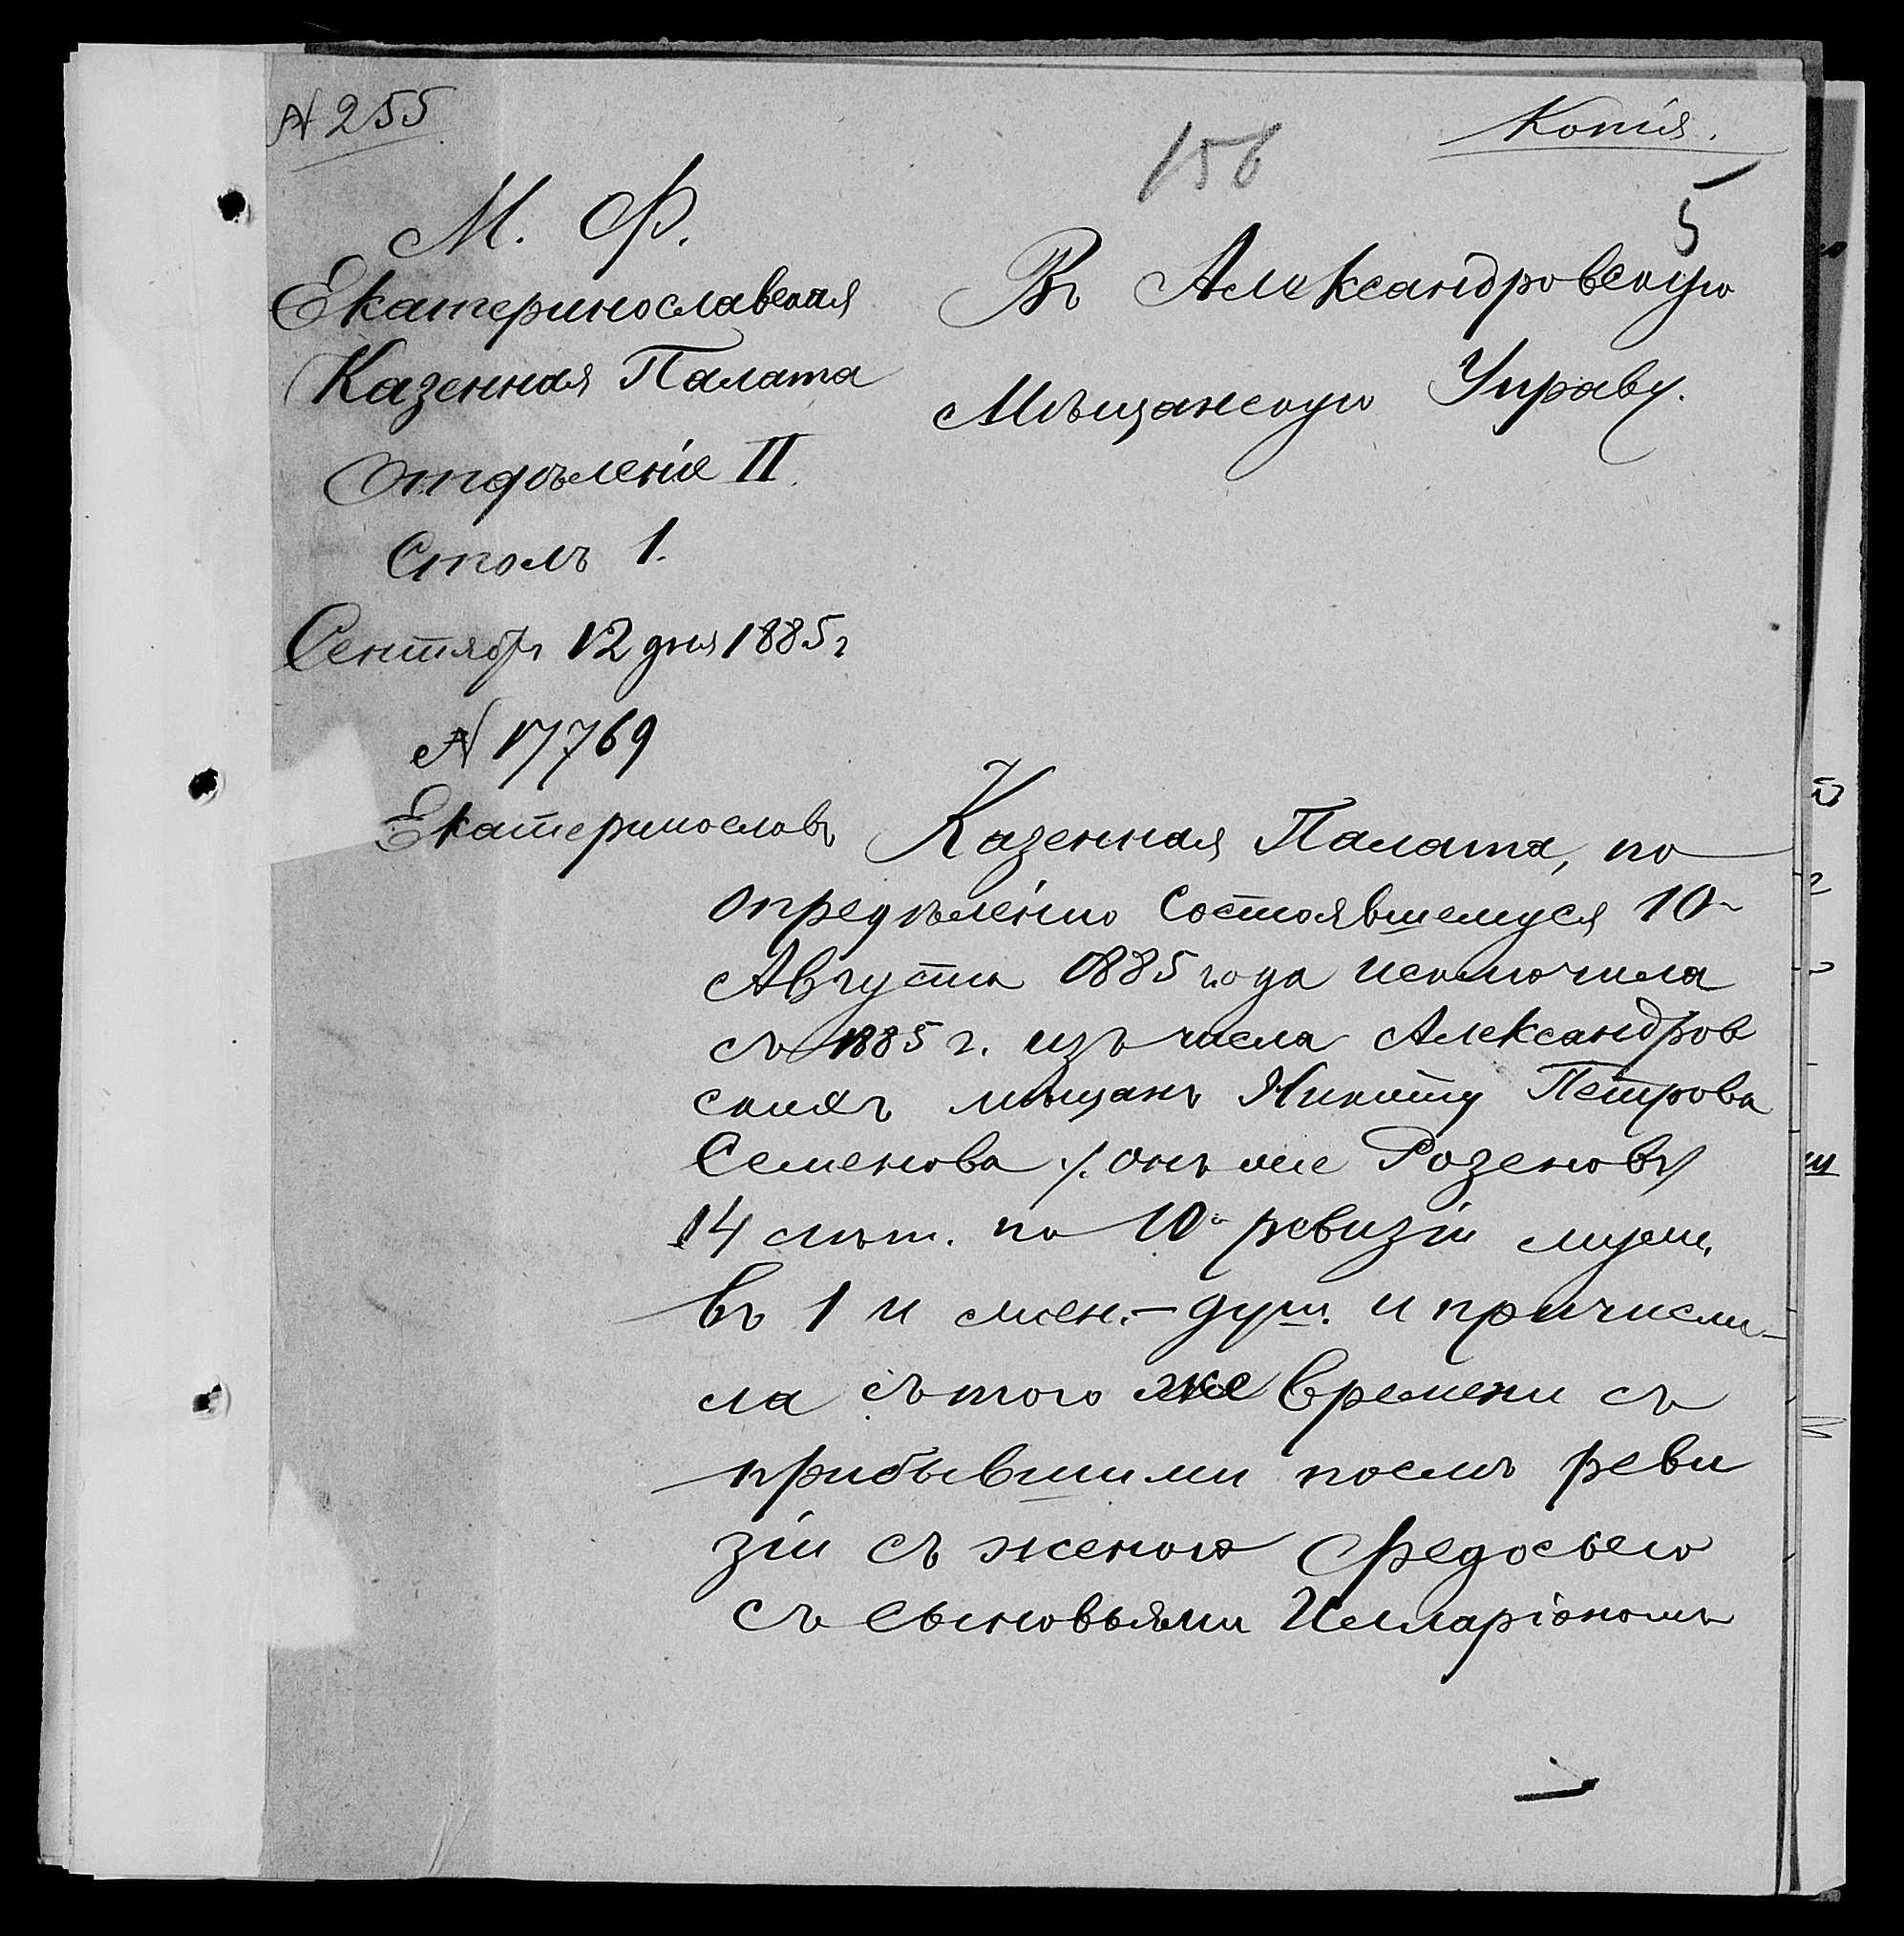 № 255
Копія.
156
5
М. Ф.
Екатеринославская
Казенная Палата
Отдѣленіе II.
Столъ 1.
Сентября 12 дня 1885 г
№ 17769
Екатеринославъ
Въ Александровскую
Мѣщанскую Управу.
Казенная Палата, по
опредѣленію состоявшемуся 10
Августа 1885 года исключила
съ 1885 г. изъ числа Александров
скихъ мѣщанъ Никиту Петрова
Семенова /. онъ же Розеновъ /
14 лѣт. по 10 ревизіи муж.
въ 1 и жен. – душ. и причисли-
ла съ того же времени съ
прибывшими послѣ реви
зіи съ женою Федосьею
съ сыновьями Илларіономъ